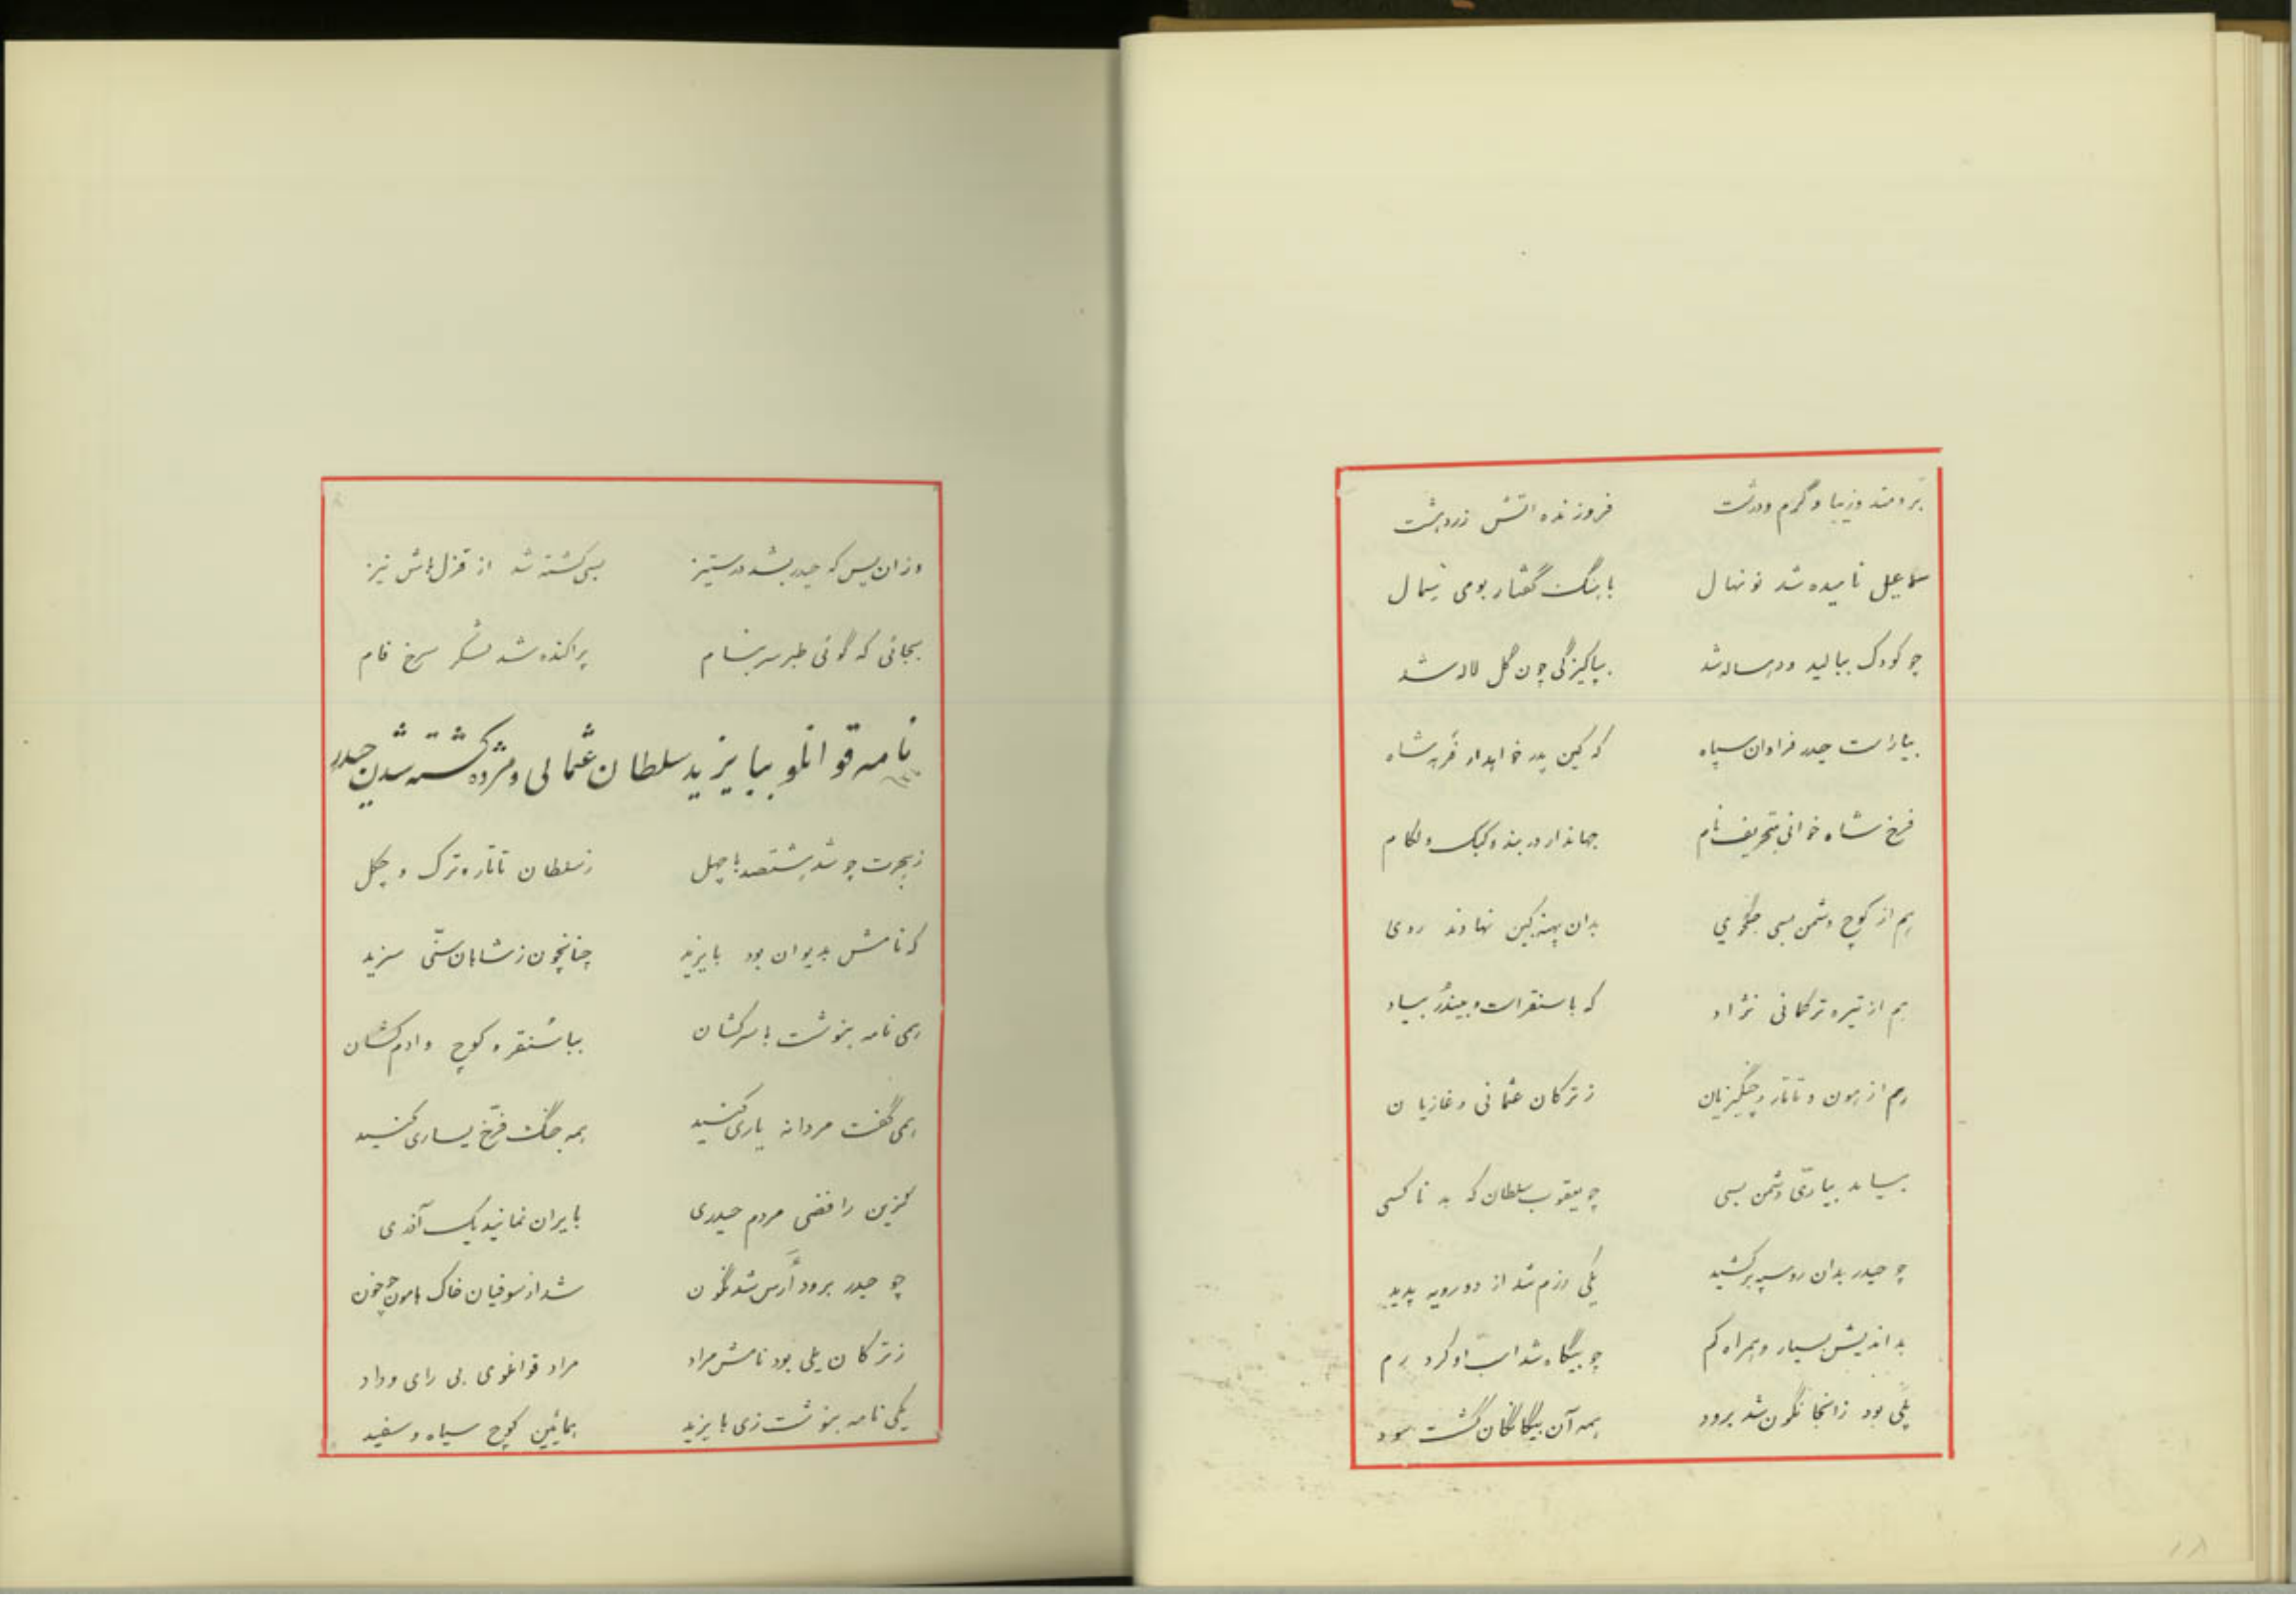 برومند و زیبا و گرم و درشت فروزنده آتش زردهشت
سماعیل نامیده شد نونهال بابنگ گفتار بومی شمال
چو کودک ببالید و دهساله شد بپاکیزگی چون گل لاله شد
بیاراست حیدر فراوان سپاه که کین پدر خواهد از فرخ شاه
فرخ شاه خوانی بتحریف نام جهاندار دربند و کبک و لکام
هم از کوچ دشمن بسی جنگجوی بدان پهنه کین نهادند روی
هم از تیره ترکمانی نژاد که باسنقرات و بیندر بیاد
هم از هون و تاتار و چنگیزیان ز ترکان عثمانی و غازیان
بیامد بیاری دشمن بسی چو یعقوب سلطان که بد ناکسی
چو حیدر بدان رو سپه برکشید یکی رزم شد از دو رویه پدید
بداندیش بسیار و همراه کم چو بیگاه شد اسب او کرد رم
پلی بود زانجا نگون شد برود همه آن بیگانگان گشت سود
وزان پس که حیدر بشد در ستیز بسی کشته شد از قزلباش نیز
بجائی که گوئی طبرسر بنام پراکنده شد لشکر سرخ فام
نامه قوانلو ببایزید سلطان عثمانی و مژده کشته شدن حیدر
ز هجرت چو شد هشتصد با چهل ز سلطان تاتار و ترک و چگل
که نامش بدیوان بود بایزید چنانچون ز شاهان سنّی سزید
همی نامه بنوشت با سرکشان بباسنقر و کوچ و ادم کشان
همی گفت مردانه یاری کنید همه جنگ فرّخ یساری کنید
کزین رافضی مردم حیدری بایران نمانید یک آذری
چو حیدر برود اَرَس شد نگون شد از صوفیان خاک هامون چو خون
ز ترکان یلی بود نامش مراد مراد قوانلوی بی رای و داد
یکی نامه بنوشت زی بایزید بمائین کوچ سیاه و سفید